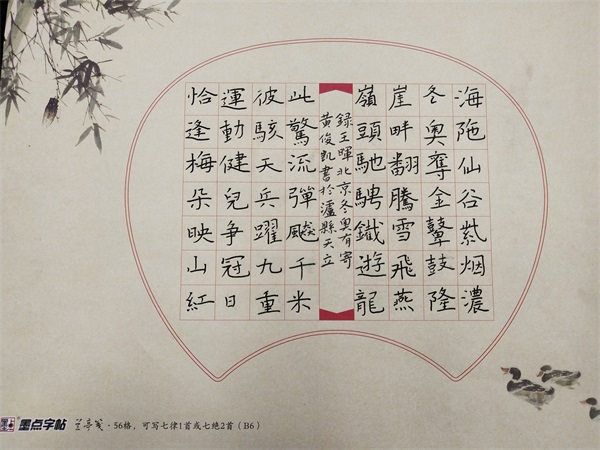 海陁仙谷紫烟濃
冬奥奪金鼙鼓隆
崖畔翻騰雪飛燕
嶺頭馳騁鐵遊龍
録王暉北京冬奥有寄
黄俊凱書於瀘縣天立
此驚流彈飈千米
彼駭天兵躍九重
運動健兒争冠日
恰逢梅朵映山紅
墨点字帖 兰亭笺·56格，可写七律1首或七绝2首（B6）